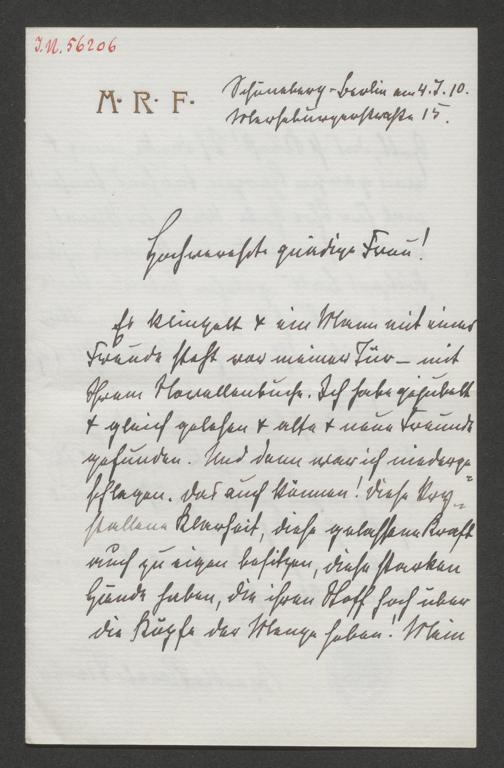 I.N. 56206
M. R. F.
Schöneberg-Berlin am 4.I.10.
Merseburgerstraße 15.
Hochverehrte gnädige Frau!
Es klingelt + ein Mann mit einer
Freude steht vor meiner Tür – mit
Ihrem Novellenbuche. Ich habe gejubelt
+ gleich gelesen + alte + neue Freunde
gefunden. Und dann war ich niederge-
schlagen. Das auch können! Diese kry-
stallene Klarheit, diese gelassene Kraft
auch zu eigen besitzen, diese starken
Hände haben, die ihren Stoff hoch über
die Köpfe der Menge heben! Mein